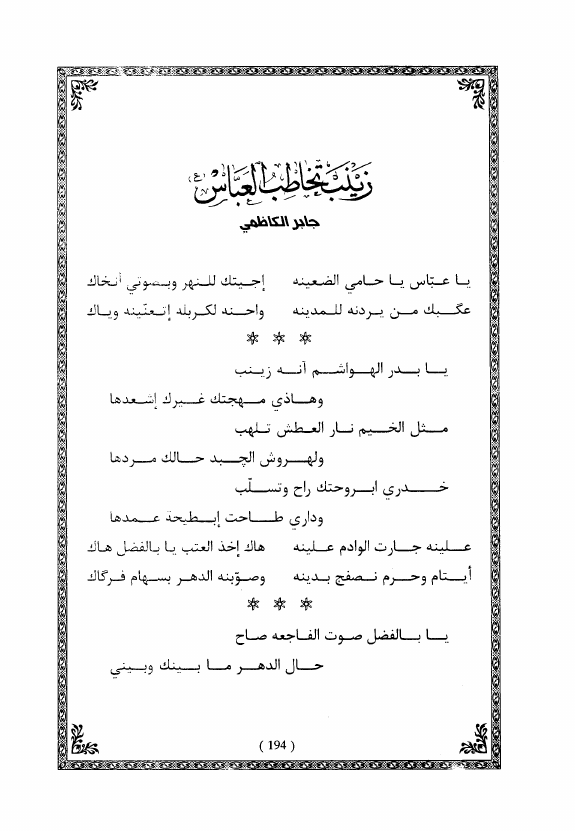 زينب تخاطب العباس (ع)
جابر الكاظمي
يا عبّاس يا حامي الضعينه إجيتك للنهر وبصوتي أنخاك
عگبك من يردنه للمدينه واحنه لكربله إتعنّينه وياك
* * *
يا بدر الهواشم آنه زينب
وهاذي مهجتك غيرك إشعدها
مثل الخيم نار العطش تلهب
ولهروش الچبد حالك مردها
خدري ابروحتك راح وتسلّب
وداري طاحت إبطيحة عمدها
علينه جارت الوادم علينه هاك إخذ العتب يا بالفضل هاك
أيتام وحرم نصفج بدينه وصوّبنه الدهر بسهام فرگاك
* * *
يا بالفضل صوت الفاجعه صاح
حال الدهر ما بينك وبيني
( 194 )